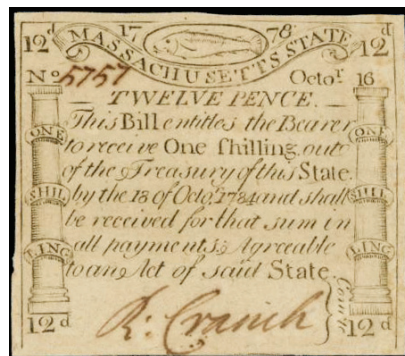 12d 17 78 12d
MASSACHUSETTS STATE
No 5757 Octor 16
TWELVE PENCE.
This Bill entitles the Bearer
to receive One ſhilling out
of the Treasury of this State.
by the 18 of Octo, 1784 and shall
be received for that sum in
all payments, Agreeable
to an Act of said State.
ONE
SHIL
LING
ONE
SHIL
LING
12d R: Cranch 12d